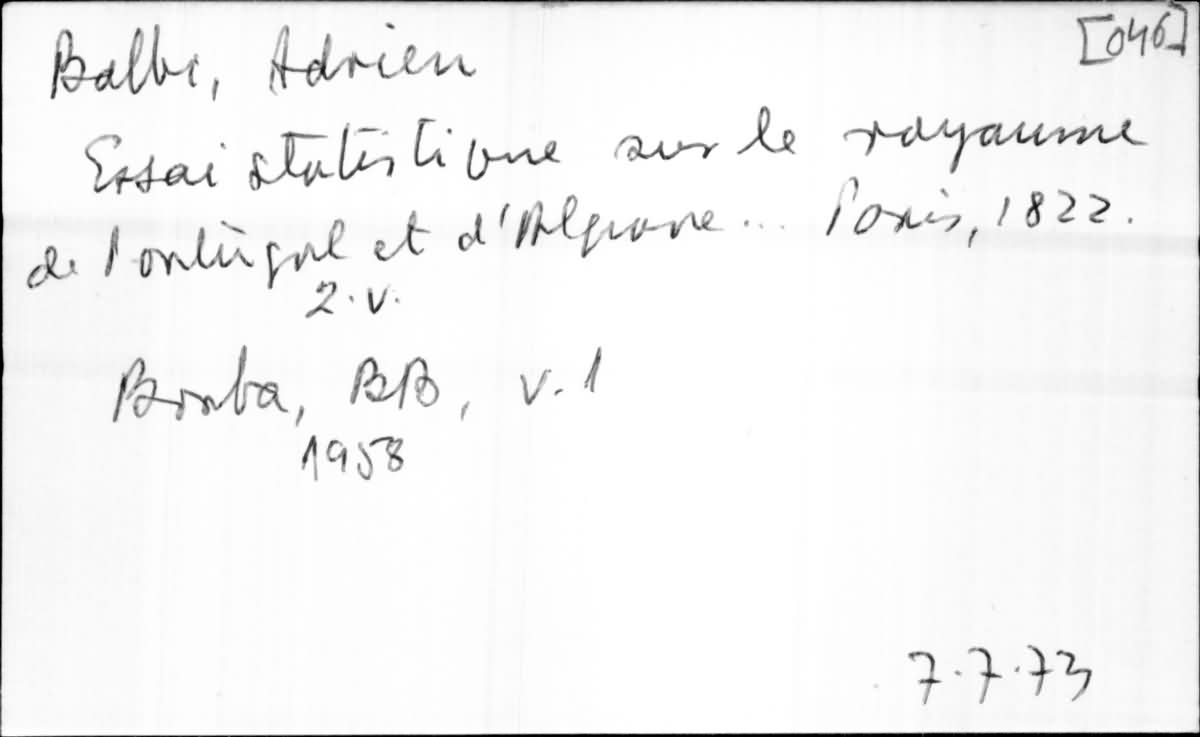 [046]
Balbi, Adrien
Essai statistique sur le royaume
de Portugal et d'Algarve... Paris, 1822.
2.v.
Borba, BB, v.1
1958
7.7.73